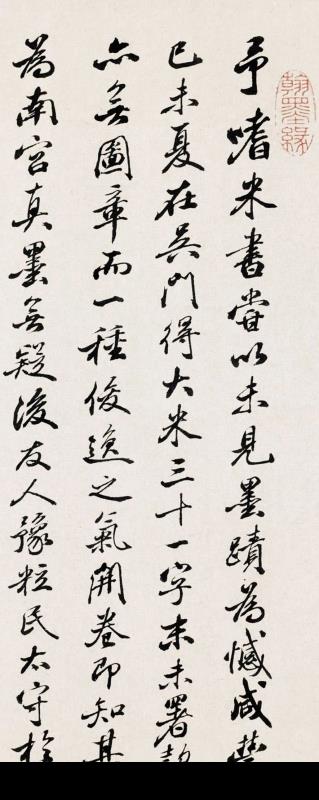 翰墨緣
予嗜米書嘗以未見墨蹟為憾咸豐
己未夏在吳門得大米三十一字末未署款
亦無圖章而一種俊逸之氣開卷即知其
為南宮真墨無疑後友人豫粒民太守